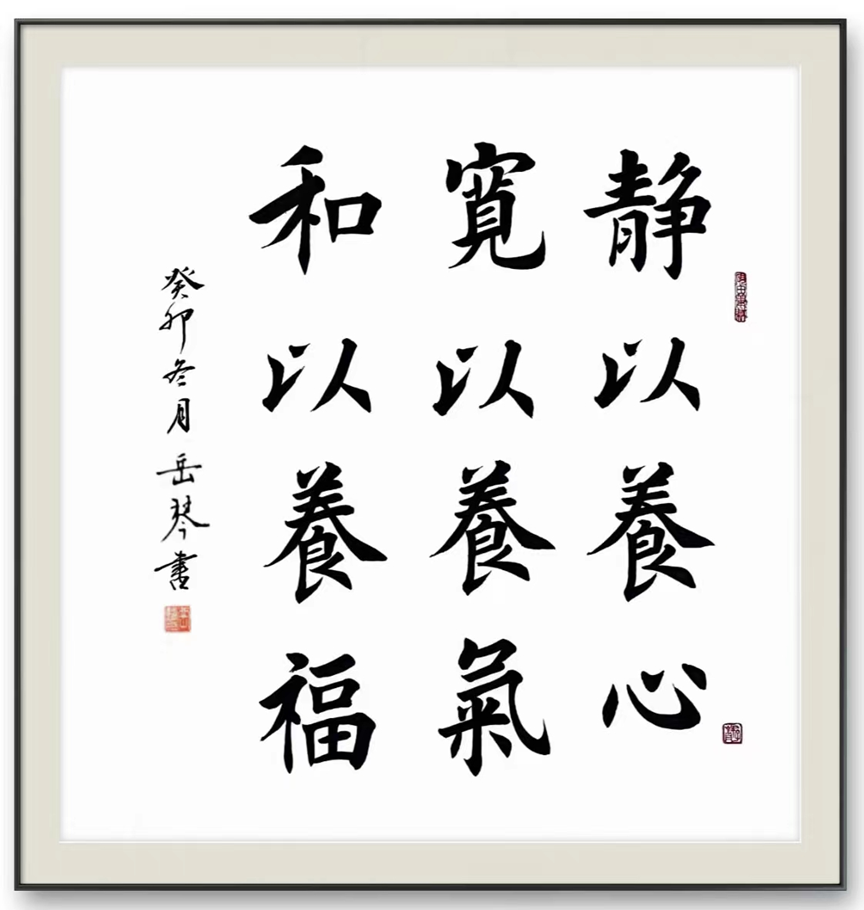 静以養心
寬以養氣
和以養福
癸卯冬月岳琴書